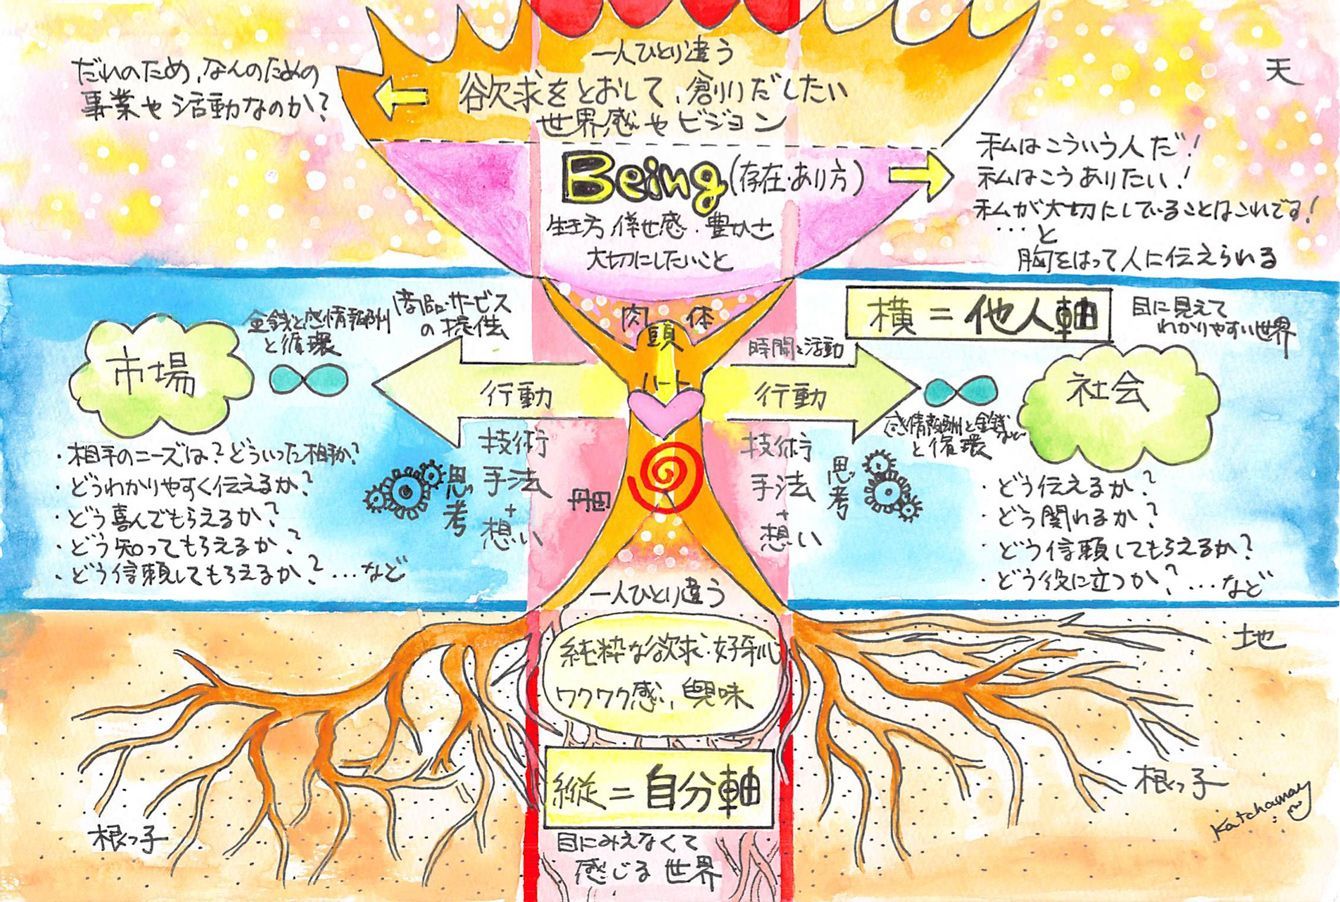 天
だれのため、なんのための
事業や活動なのか?
一人ひとり違う
欲求をとおして、創りだしたい
世界感やビジョン
Being(存在・あり方)
生き方、倖せ感・豊かさ
大切にしたいこと
私はこういう人だ!
私はこうありたい!
私が大切にしていることはこれです!
…と
胸をはって人に伝えられる
横=他人軸
目に見えて
わかりやすい世界
肉体
頭
ハート
丹田
市場
金銭と感情報酬
と循環
商品・サービス
の提供
行動
技術
手法
+
想い
思考
・相手のニーズは?どういった相手か?
・どうわかりやすく伝えるか?
・どう喜んでもらえるか?
・どう知ってもらえるか?
・どう信頼してもらえるか?…など
時間と活動
行動
技術
手法
+
想い
思考
社会
感情報酬と金銭など
と循環
・どう伝えるか?
・どう関れるか?
・どう信頼してもらえるか?
・どう役に立つか?…など
地
一人ひとり違う
純粋な欲求・好奇心
ワクワク感、興味
縦=自分軸
目にみえなくて
感じる世界
根っ子
根っ子
Katchamay